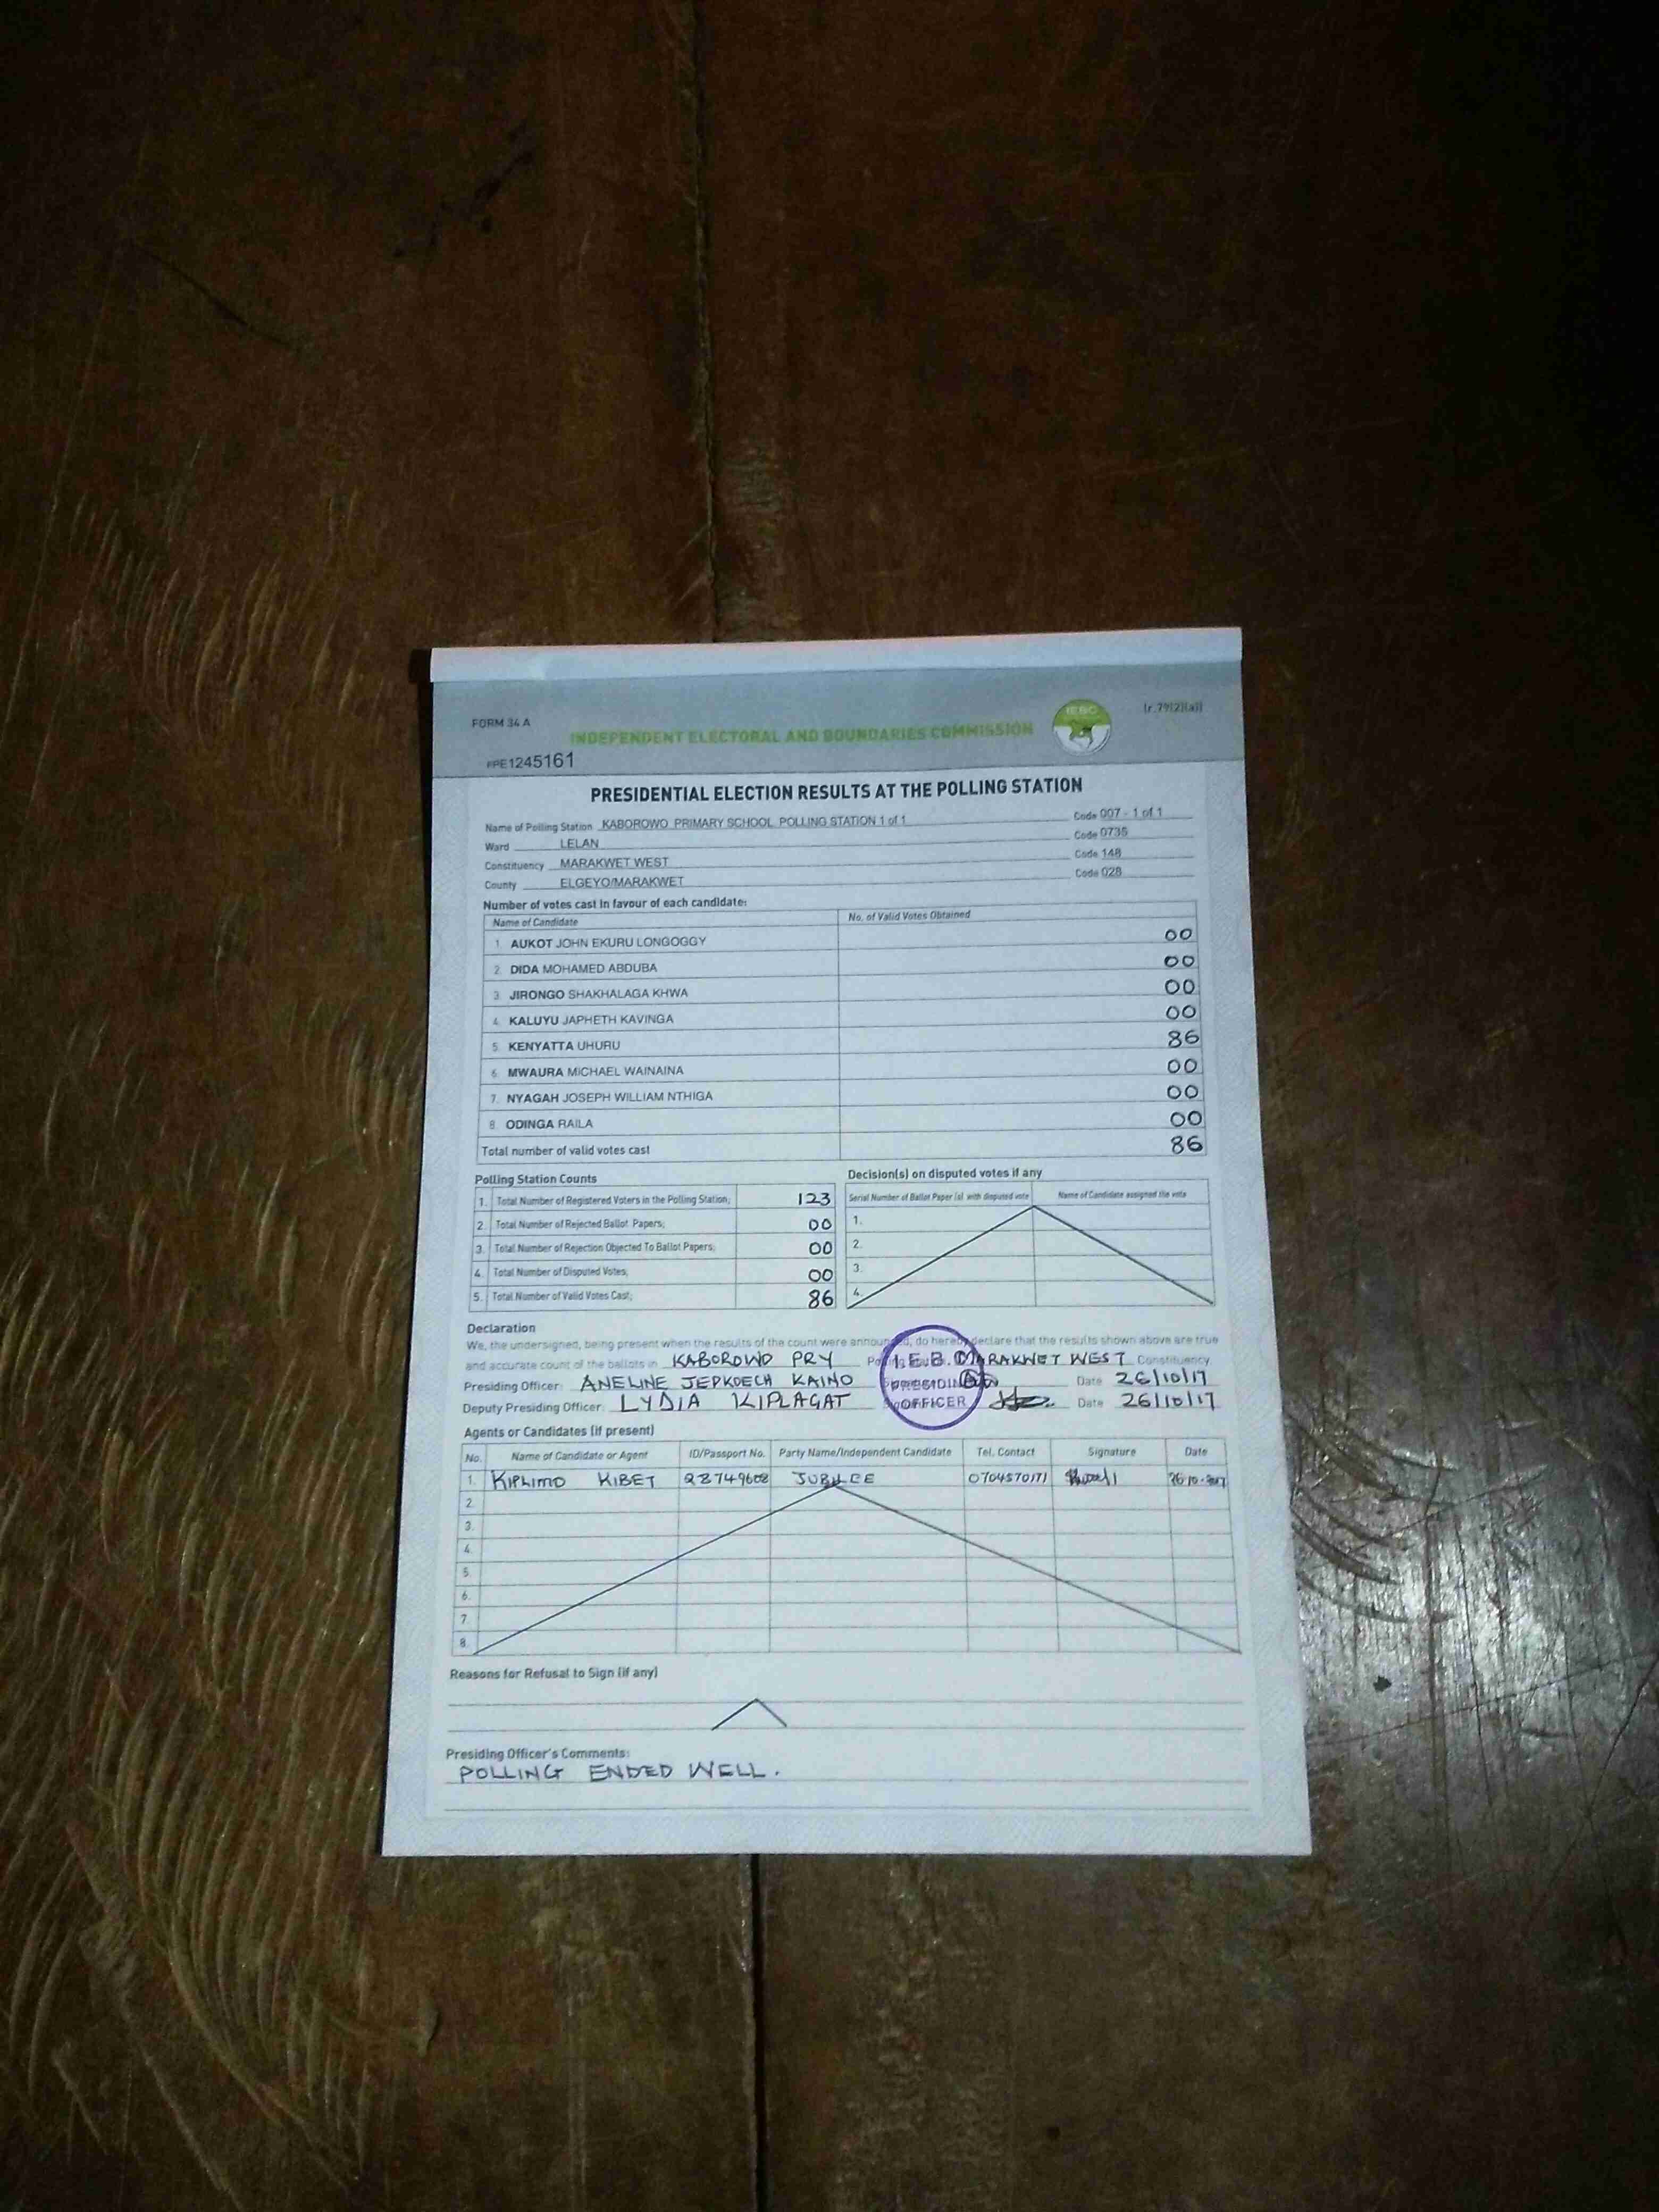 FORM 34 A
INDEPENDENT ELECTORAL AND BOUNDARIES COMMISSION
IEBC
(r.79(2)(a))
PPE1245161
PRESIDENTIAL ELECTION RESULTS AT THE POLLING STATION
Name of Polling Station KABOROWO PRIMARY SCHOOL POLLING STATION 1 of 1 Code 007 - 1 of 1
Ward LELAN Code 0735
Constituency MARAKWET WEST Code 148
County ELGEYO/MARAKWET Code 028
Number of votes cast in favour of each candidate:
Name of Candidate No. of Valid Votes Obtained
1. AUKOT JOHN EKURU LONGOGGY 00
2. DIDA MOHAMED ABDUBA 00
3. JIRONGO SHAKHALAGA KHWA 00
4. KALUYU JAPHETH KAVINGA 00
5. KENYATTA UHURU 86
6. MWAURA MICHAEL WAINAINA 00
7. NYAGAH JOSEPH WILLIAM NTHIGA 00
8. ODINGA RAILA 00
Total number of valid votes cast 86
Polling Station Counts
1. Total Number of Registered Voters in the Polling Station; 123
2. Total Number of Rejected Ballot Papers; 00
3. Total Number of Rejection Objected To Ballot Papers; 00
4. Total Number of Disputed Votes; 00
5. Total Number of Valid Votes Cast; 86
Decision(s) on disputed votes if any
Serial Number of Ballot Paper (s) with disputed vote Name of Candidate assigned the vote
1.
2.
3.
4.
Declaration
We, the undersigned, being present when the results of the count were announced, do hereby declare that the results shown above are true
and accurate count of the ballots in KABOROWO PRY MARAKWET WEST Constituency
Presiding Officer: ANELINE JEPKOECH KAINO Date 26/10/17
Deputy Presiding Officer: LYDIA KIPLAGAT Date 26/10/17
I.E.B.C
PRESIDING
OFFICER
Agents or Candidates (if present)
No. Name of Candidate or Agent ID/Passport No. Party Name/Independent Candidate Tel. Contact Signature Date
1. KIPLIMO KIBET 28749608 JUBILEE 0704570171 26-10-2017
2.
3.
4.
5.
6.
7.
8.
Reasons for Refusal to Sign (if any)
Presiding Officer's Comments:
POLLING ENDED WELL.